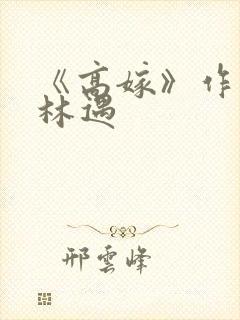 《高嫁》作
林遇
邢雲峰